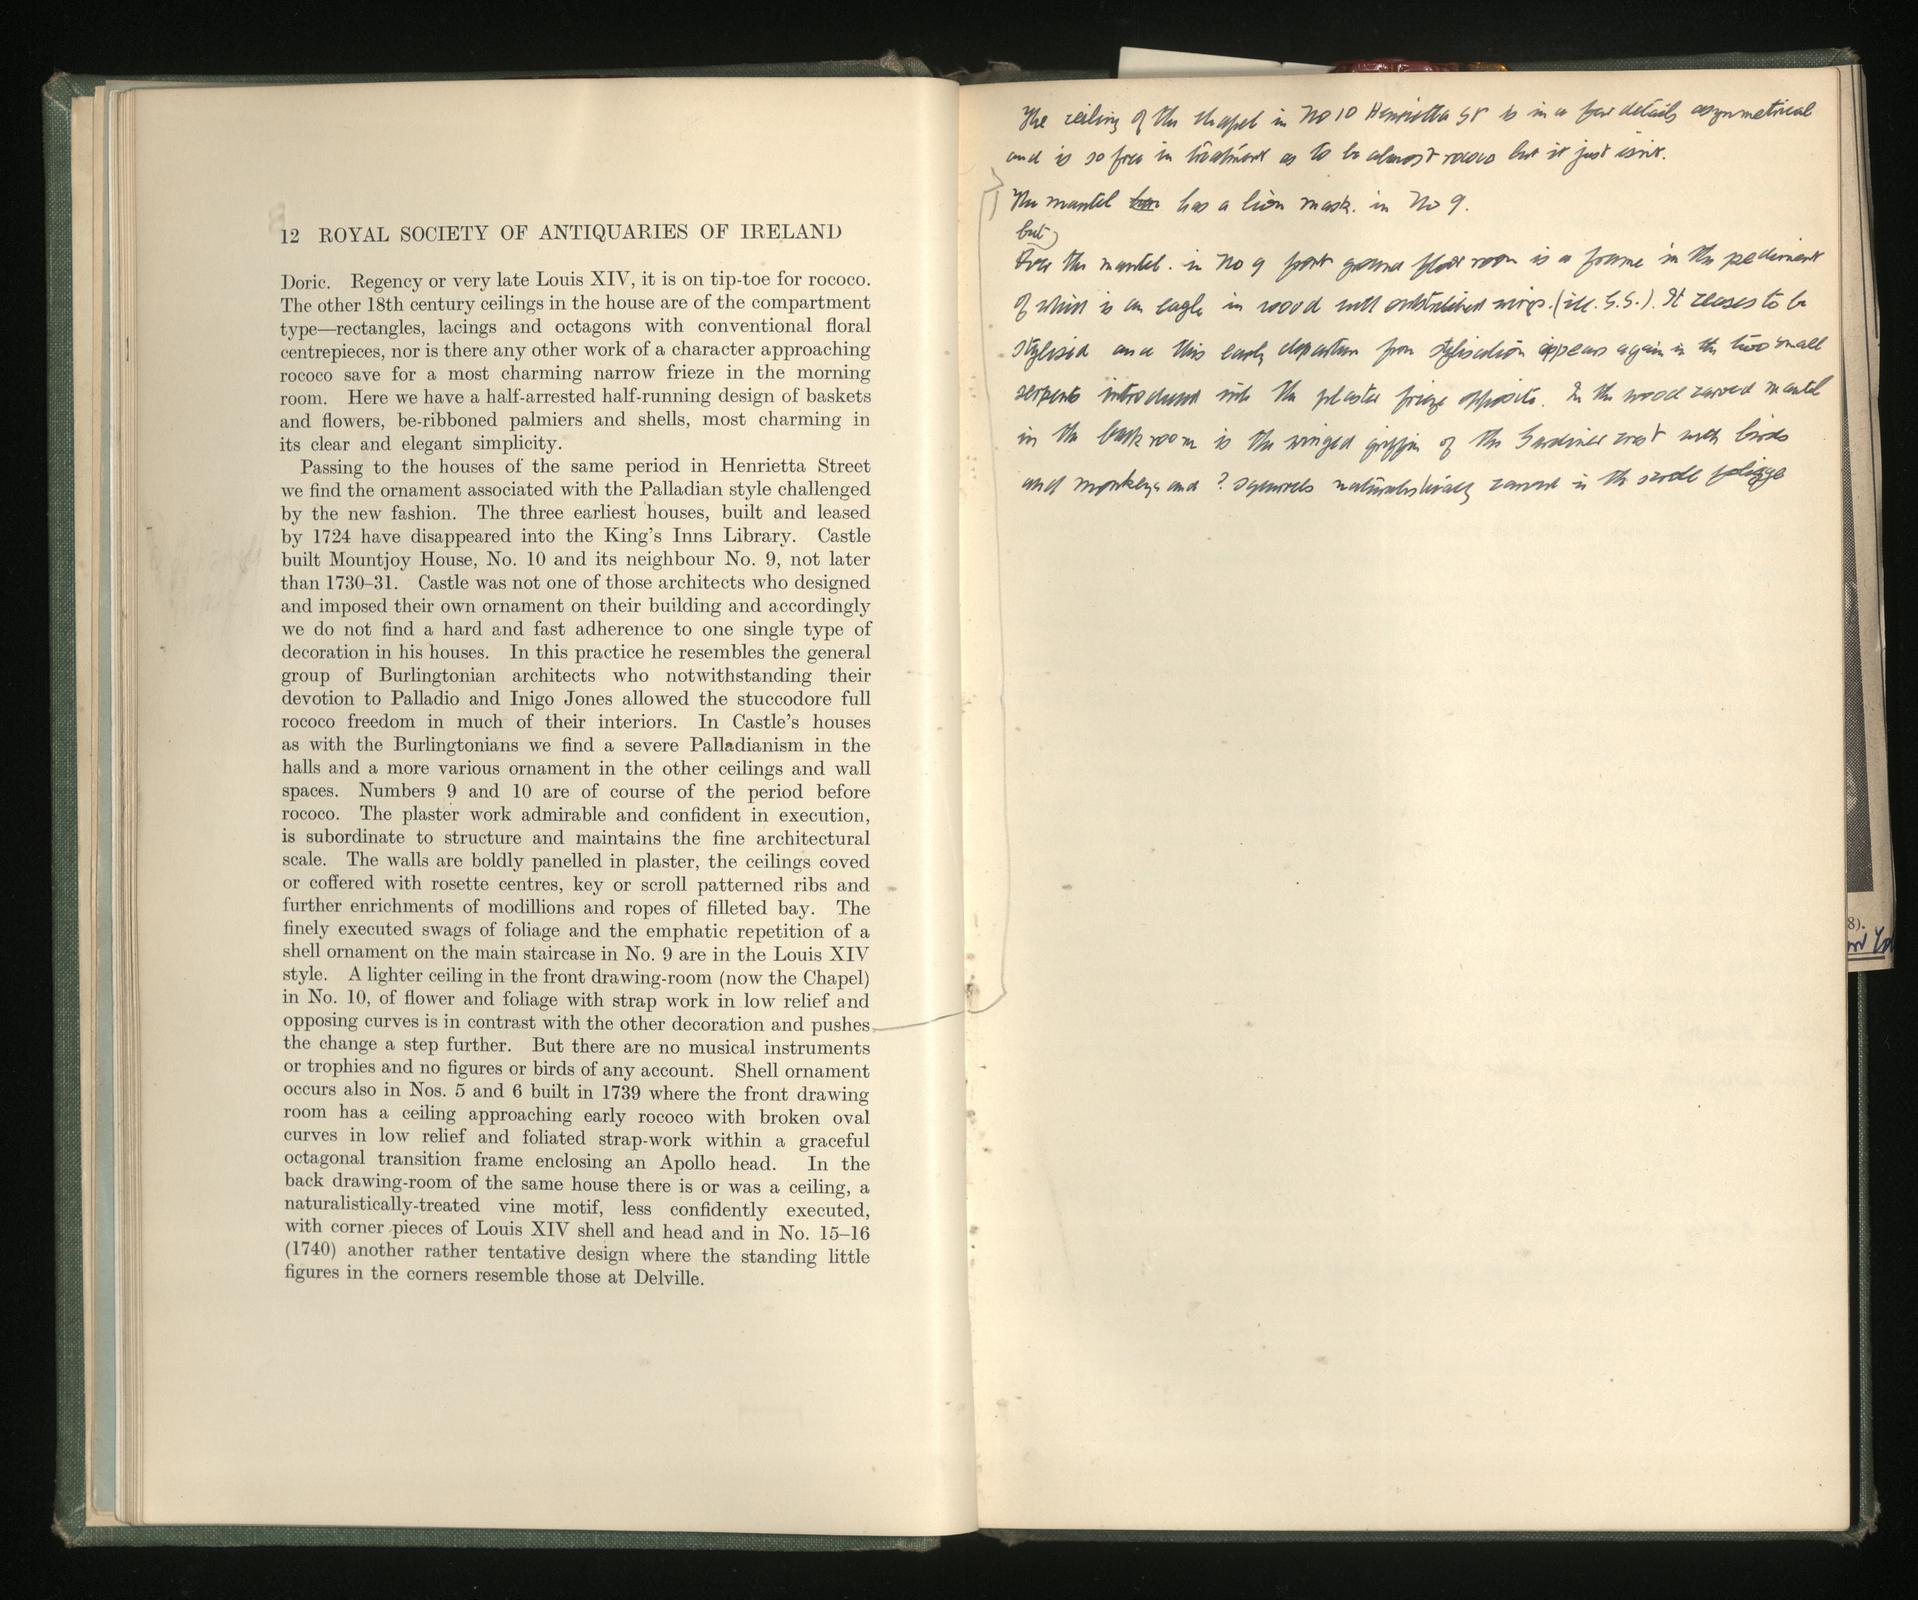 12 ROYAL SOCIETY OF ANTIQUARIES OF IRELAND
Doric. Regency or very late Louis XIV, it is on tip-toe for rococo.
The other 18th century ceilings in the house are of the compartment
type—rectangles, lacings and octagons with conventional floral
centrepieces, nor is there any other work of a character approaching
rococo save for a most charming narrow frieze in the morning
room. Here we have a half-arrested half-running design of baskets
and flowers, be-ribboned palmiers and shells, most charming in
its clear and elegant simplicity.
Passing to the houses of the same period in Henrietta Street
we find the ornament associated with the Palladian style challenged
by the new fashion. The three earliest houses, built and leased
by 1724 have disappeared into the King's Inns Library. Castle
built Mountjoy House, No. 10 and its neighbour No. 9, not later
than 1730–31. Castle was not one of those architects who designed
and imposed their own ornament on their building and accordingly
we do not find a hard and fast adherence to one single type of
decoration in his houses. In this practice he resembles the general
group of Burlingtonian architects who notwithstanding their
devotion to Palladio and Inigo Jones allowed the stuccodore full
rococo freedom in much of their interiors. In Castle's houses
as with the Burlingtonians we find a severe Palladianism in the
halls and a more various ornament in the other ceilings and wall
spaces. Numbers 9 and 10 are of course of the period before
rococo. The plaster work admirable and confident in execution,
is subordinate to structure and maintains the fine architectural
scale. The walls are boldly panelled in plaster, the ceilings coved
or coffered with rosette centres, key or scroll patterned ribs and
further enrichments of modillions and ropes of filleted bay. The
finely executed swags of foliage and the emphatic repetition of a
shell ornament on the main staircase in No. 9 are in the Louis XIV
style. A lighter ceiling in the front drawing-room (now the Chapel)
in No. 10, of flower and foliage with strap work in low relief and
opposing curves is in contrast with the other decoration and pushes
the change a step further. But there are no musical instruments
or trophies and no figures or birds of any account. Shell ornament
occurs also in Nos. 5 and 6 built in 1739 where the front drawing
room has a ceiling approaching early rococo with broken oval
curves in low relief and foliated strap-work within a graceful
octagonal transition frame enclosing an Apollo head. In the
back drawing-room of the same house there is or was a ceiling, a
naturalistically-treated vine motif, less confidently executed,
with corner pieces of Louis XIV shell and head and in No. 15–16
(1740) another rather tentative design where the standing little
figures in the corners resemble those at Delville.
The ceiling of the chapel in No 10 Henrietta St is in a few details asymmetrical
and is so free in treatment as to be almost rococo but it just isn't.
The mantel has a lion mask. in No 9.
but
Over the mantel. in No 9 front ground floor room is a frame in the pediment
of which is an eagle in wood with outstretched wings. (ill. G.S.). It ceases to be
stylised and this early departure from stylisation appears again in the two small
serpents introduced into the plaster frieze opposite. In the wood carved mantel
in the back room is the winged griffin of the Gardiner crest with birds
and monkeys and ? squirrels naturalistically carved in the scroll foliage
8).